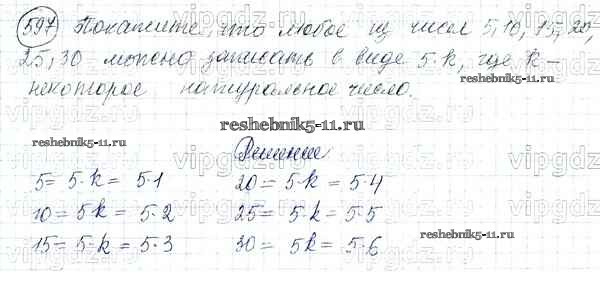 597 Покажите, что любое из чисел 5, 10, 15, 20,
25, 30 можно записать в виде 5·k, где k –
некоторое натуральное число.
reshebnik5-11.ru
Решение
reshebnik5-11.ru
5 = 5·k = 5·1 20 = 5·k = 5·4
10 = 5k = 5·2 25 = 5·k = 5·5
15 = 5·k = 5·3 30 = 5k = 5·6
reshebnik5-11.ru
vipgdz